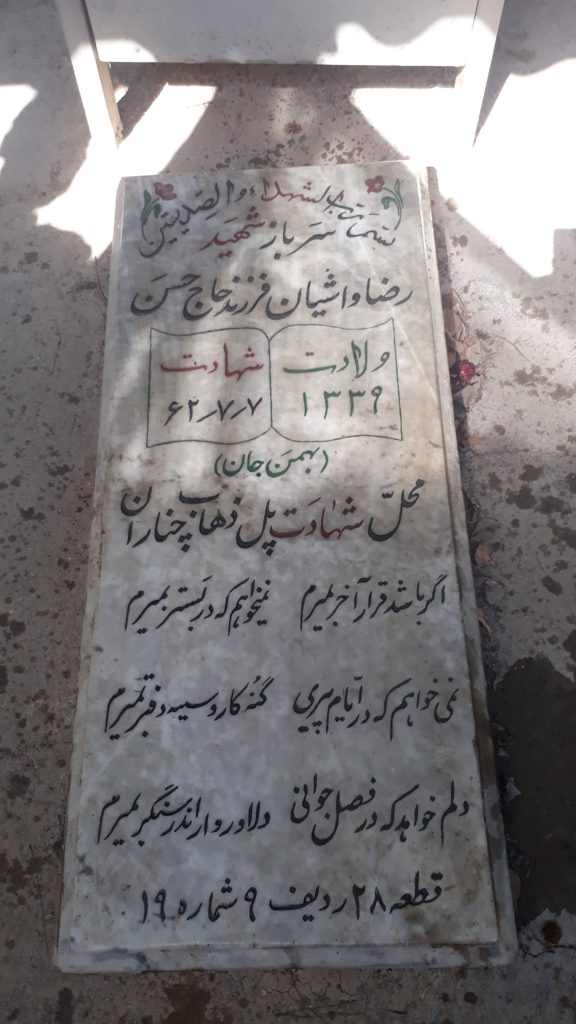 بسمه‌تعالی رب الشهداء والصدیقین
سرباز شهید
رضا واشیان فرزند حاج حسن
ولادت شهادت
۱۳۳۹ ۶۲/۷/۷
(بهمن جان)
محلّ شهادت پل ذهاب چناران
اگر باشد قرار آخر بمیرم نمیخواهم که در بستر بمیرم
نمی خواهم که در ایام پیری گنه کار و سیه دفتر بمیرم
دلم خواهد که در فصل جوانی دلاور وار اندر سنگر بمیرم
قطعه ۲۸ ردیف ۹ شماره ۱۹